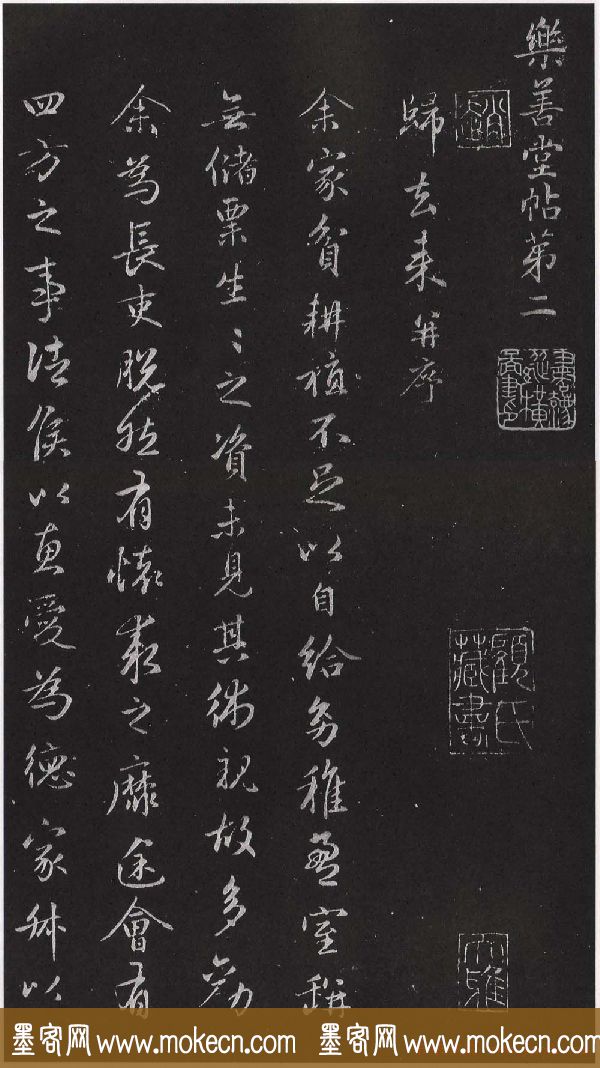 樂善堂帖第二
歸去來并序
余家貧耕植不足以自給幼稚盈室缾
無儲粟生〻之資未見其術親故多勸
余為長吏脫然有懷求之靡途會有
四方之事諸侯以惠愛為德家叔以
顧氏藏書
墨客网 www.mokecn.com 墨客网 www.mokecn.com